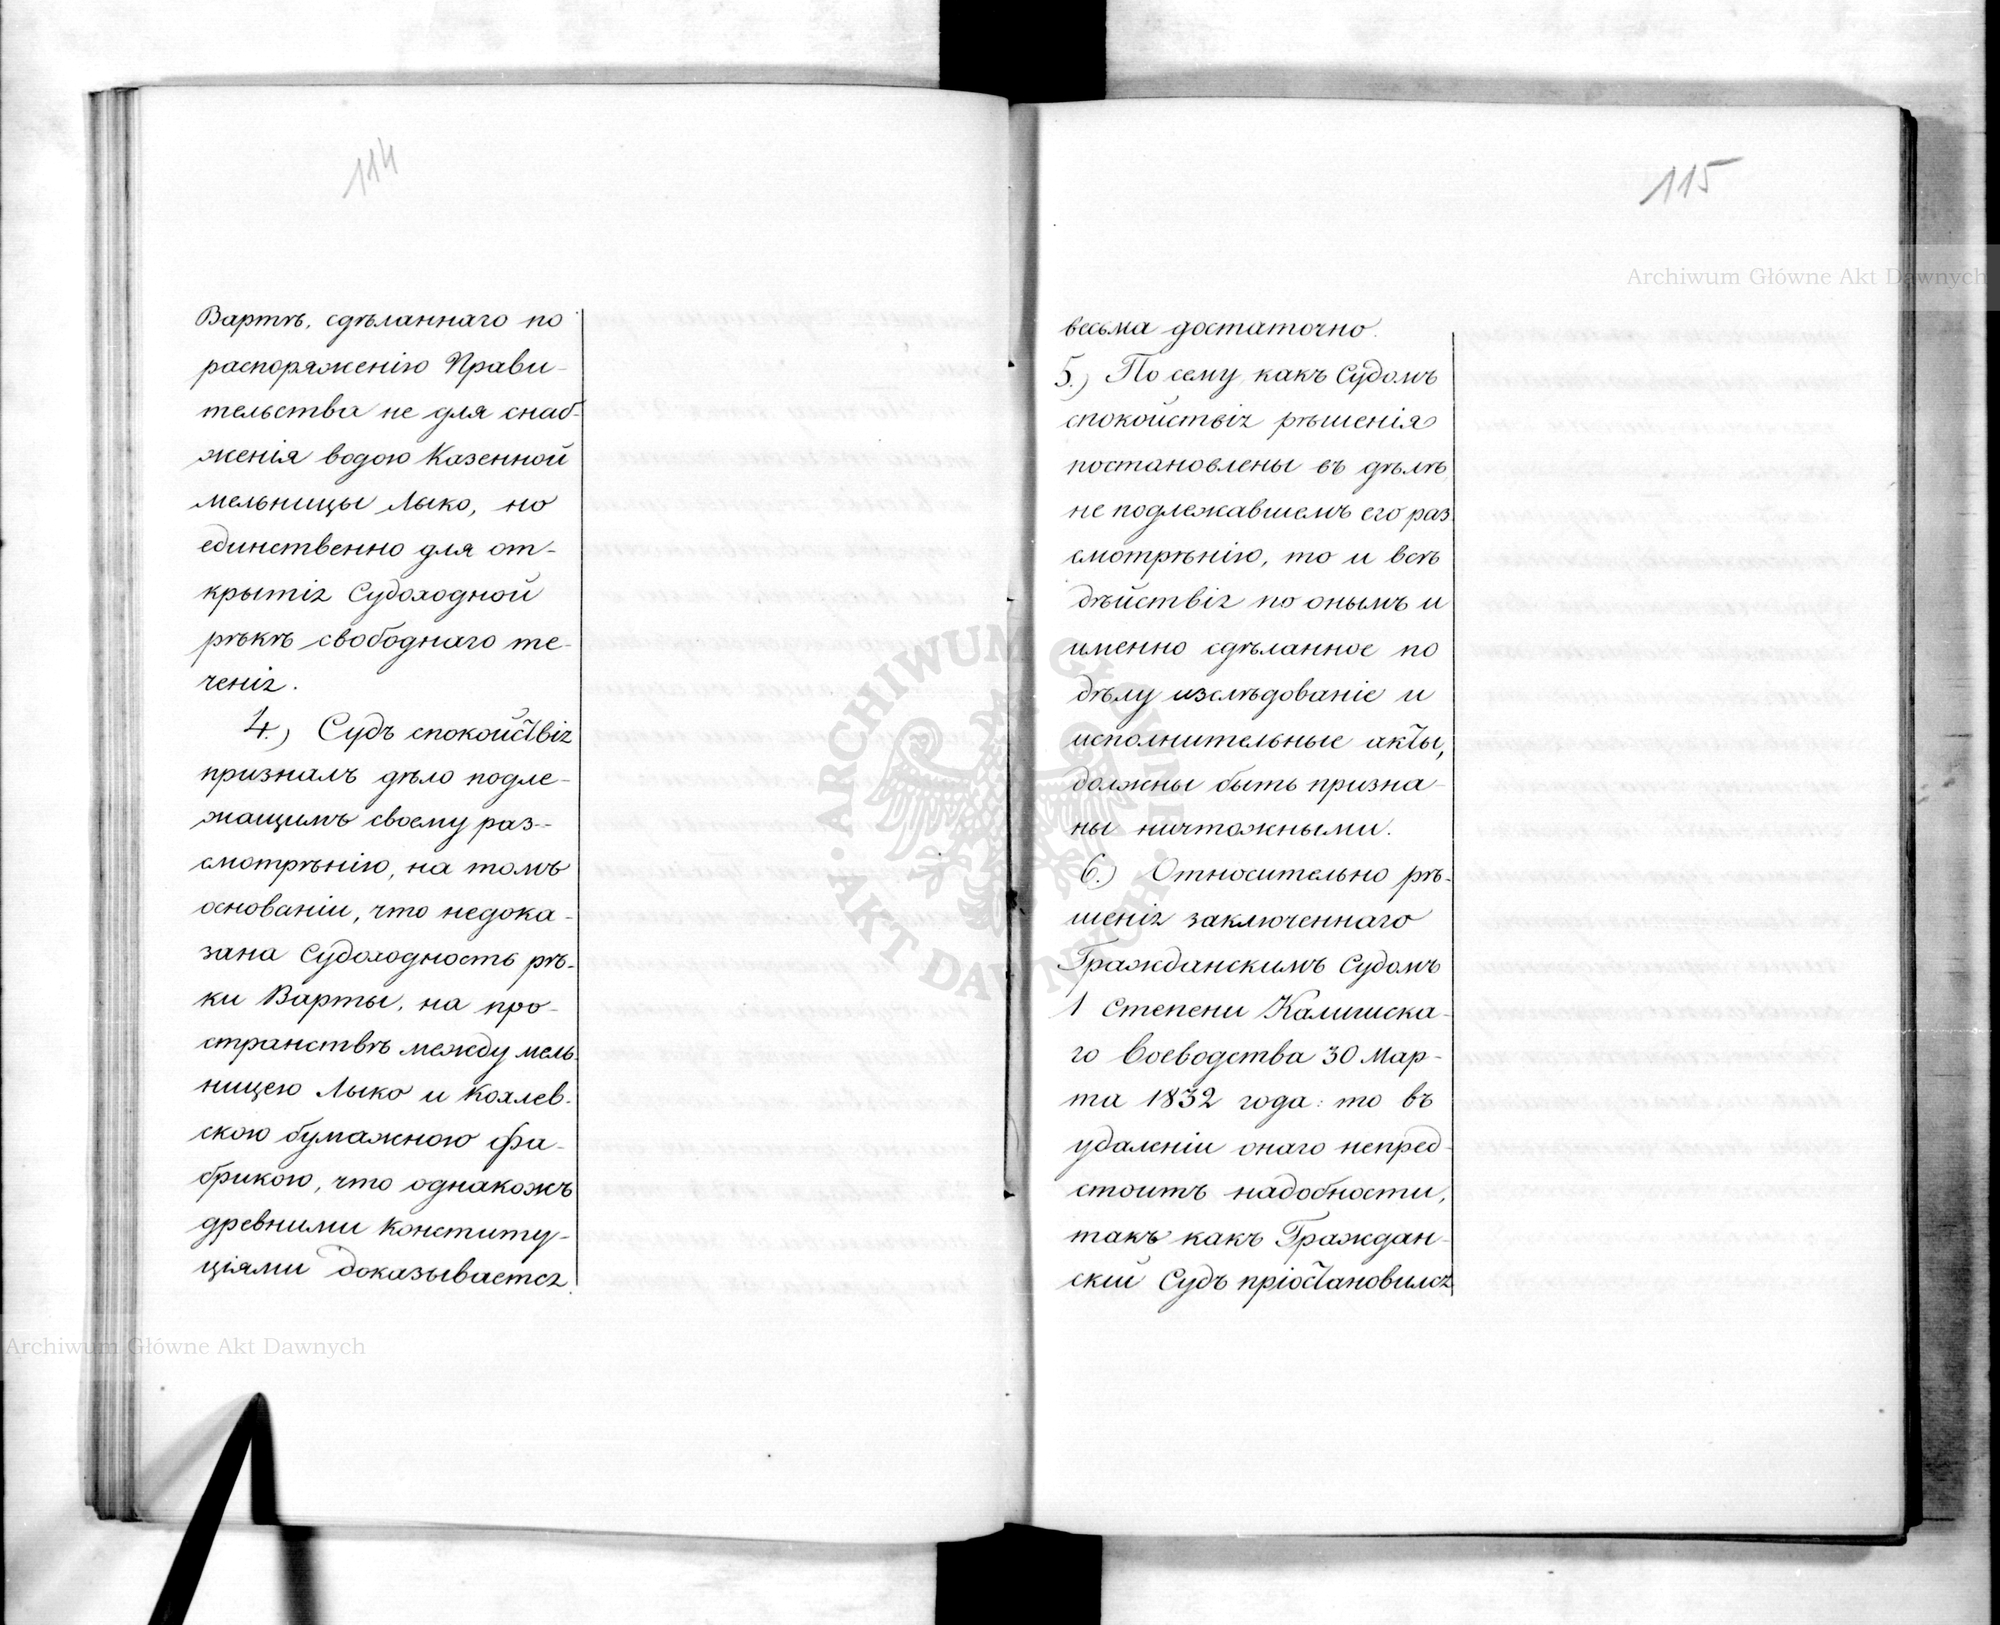 114
Вартѣ, сдѣланнаго по
распоряженію Прави-
тельства не для снаб-
женія водою Казенной
мельницы Лыко, но
единственно для от-
крытія Судоходной
рѣкѣ свободнаго те-
ченія.
4.) Судъ спокойствія
призналъ дѣло подле-
жащимъ своему раз-
смотрѣнію, на томъ
основаніи, что недока-
зана Судоходность рѣ-
ки Варты, на про-
странствѣ между мель-
ницею Лыко и Кохлев-
скою бумажною фа-
брикою, что однакожъ
древними Конститу-
ціями доказывается
115
весьма достаточно.
5.) По сему, какъ Судомъ
спокойствія рѣшенія
постановлены въ дѣлѣ,
не подлежавшемъ его раз-
смотрѣнію, то и всѣ
дѣйствія по онымъ и
именно сдѣланное по
дѣлу изслѣдованіе и
исполнительные акты,
должны быть призна-
ны ничтожными.
6.) Относительно рѣ-
шенія заключеннаго
Гражданскимъ Судомъ
1 Степени Калишска-
го Воеводства 30 Мар-
та 1832 года: то въ
удаленіи онаго непред-
стоитъ надобности,
такъ какъ Граждан-
скій Судъ пріостановился
Archiwum Główne Akt Dawnych
Archiwum Główne Akt Dawnych
ARCHIWUM GŁÓWNE AKT DAWNYCH